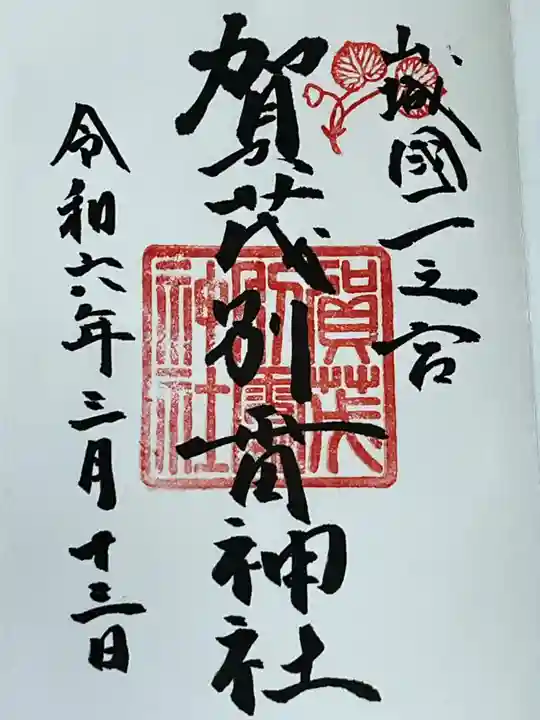 山城國一之宮
賀茂別雷神社
令和六年三月十三日
賀茂
別雷
神社